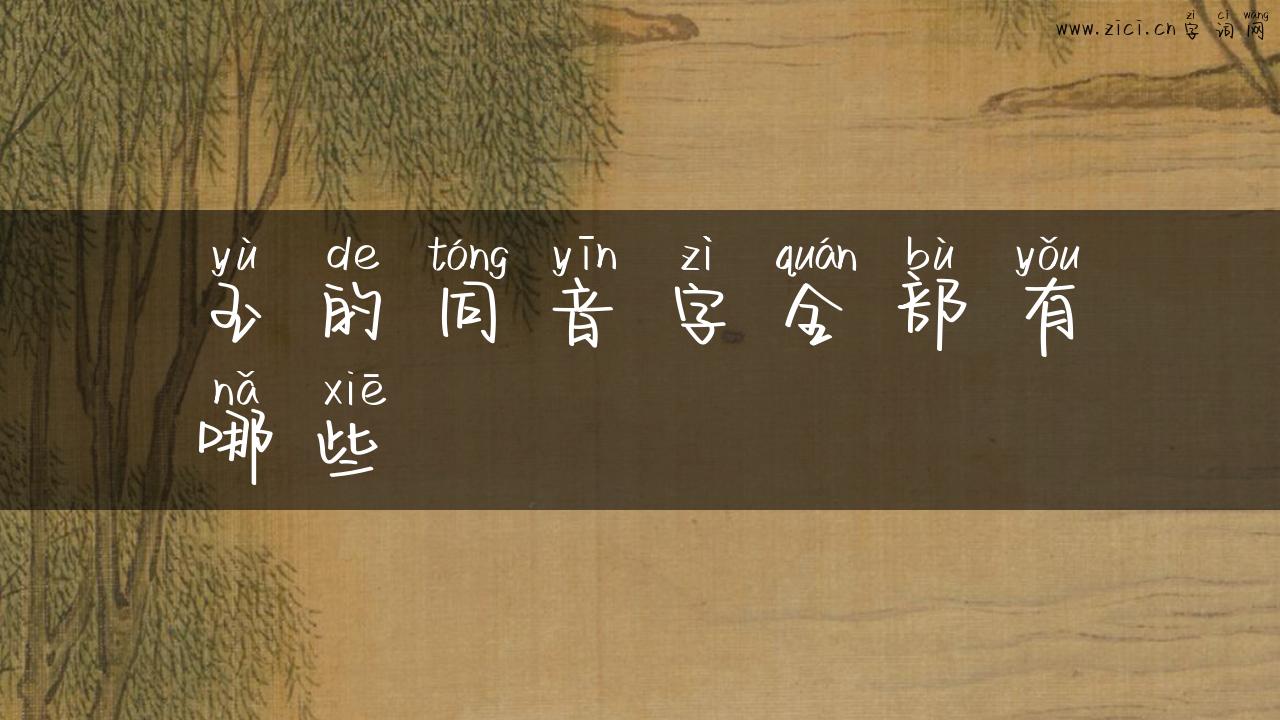 zì cí wǎng
www.zici.cn 字词网
yù de tóng yīn zì quán bù yǒu
玉的同音字全部有
nǎ xiē
哪些